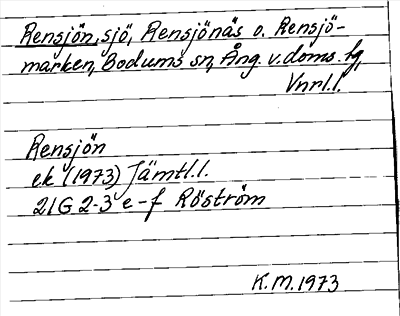 Rensjön, sjö, Rensjönäs o. Rensjö-
marken, Bodums sn, Ång. v. doms. hg,
Vnrl. l.
Rensjön
ek (1973) Jämtl. l.
21G 2-3 e-f Röström
K.M. 1973